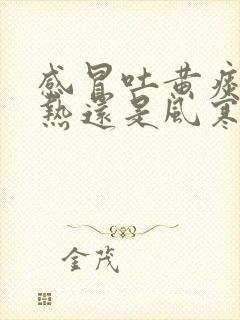 感冒吐黄痰
熱還是風寒
金茂